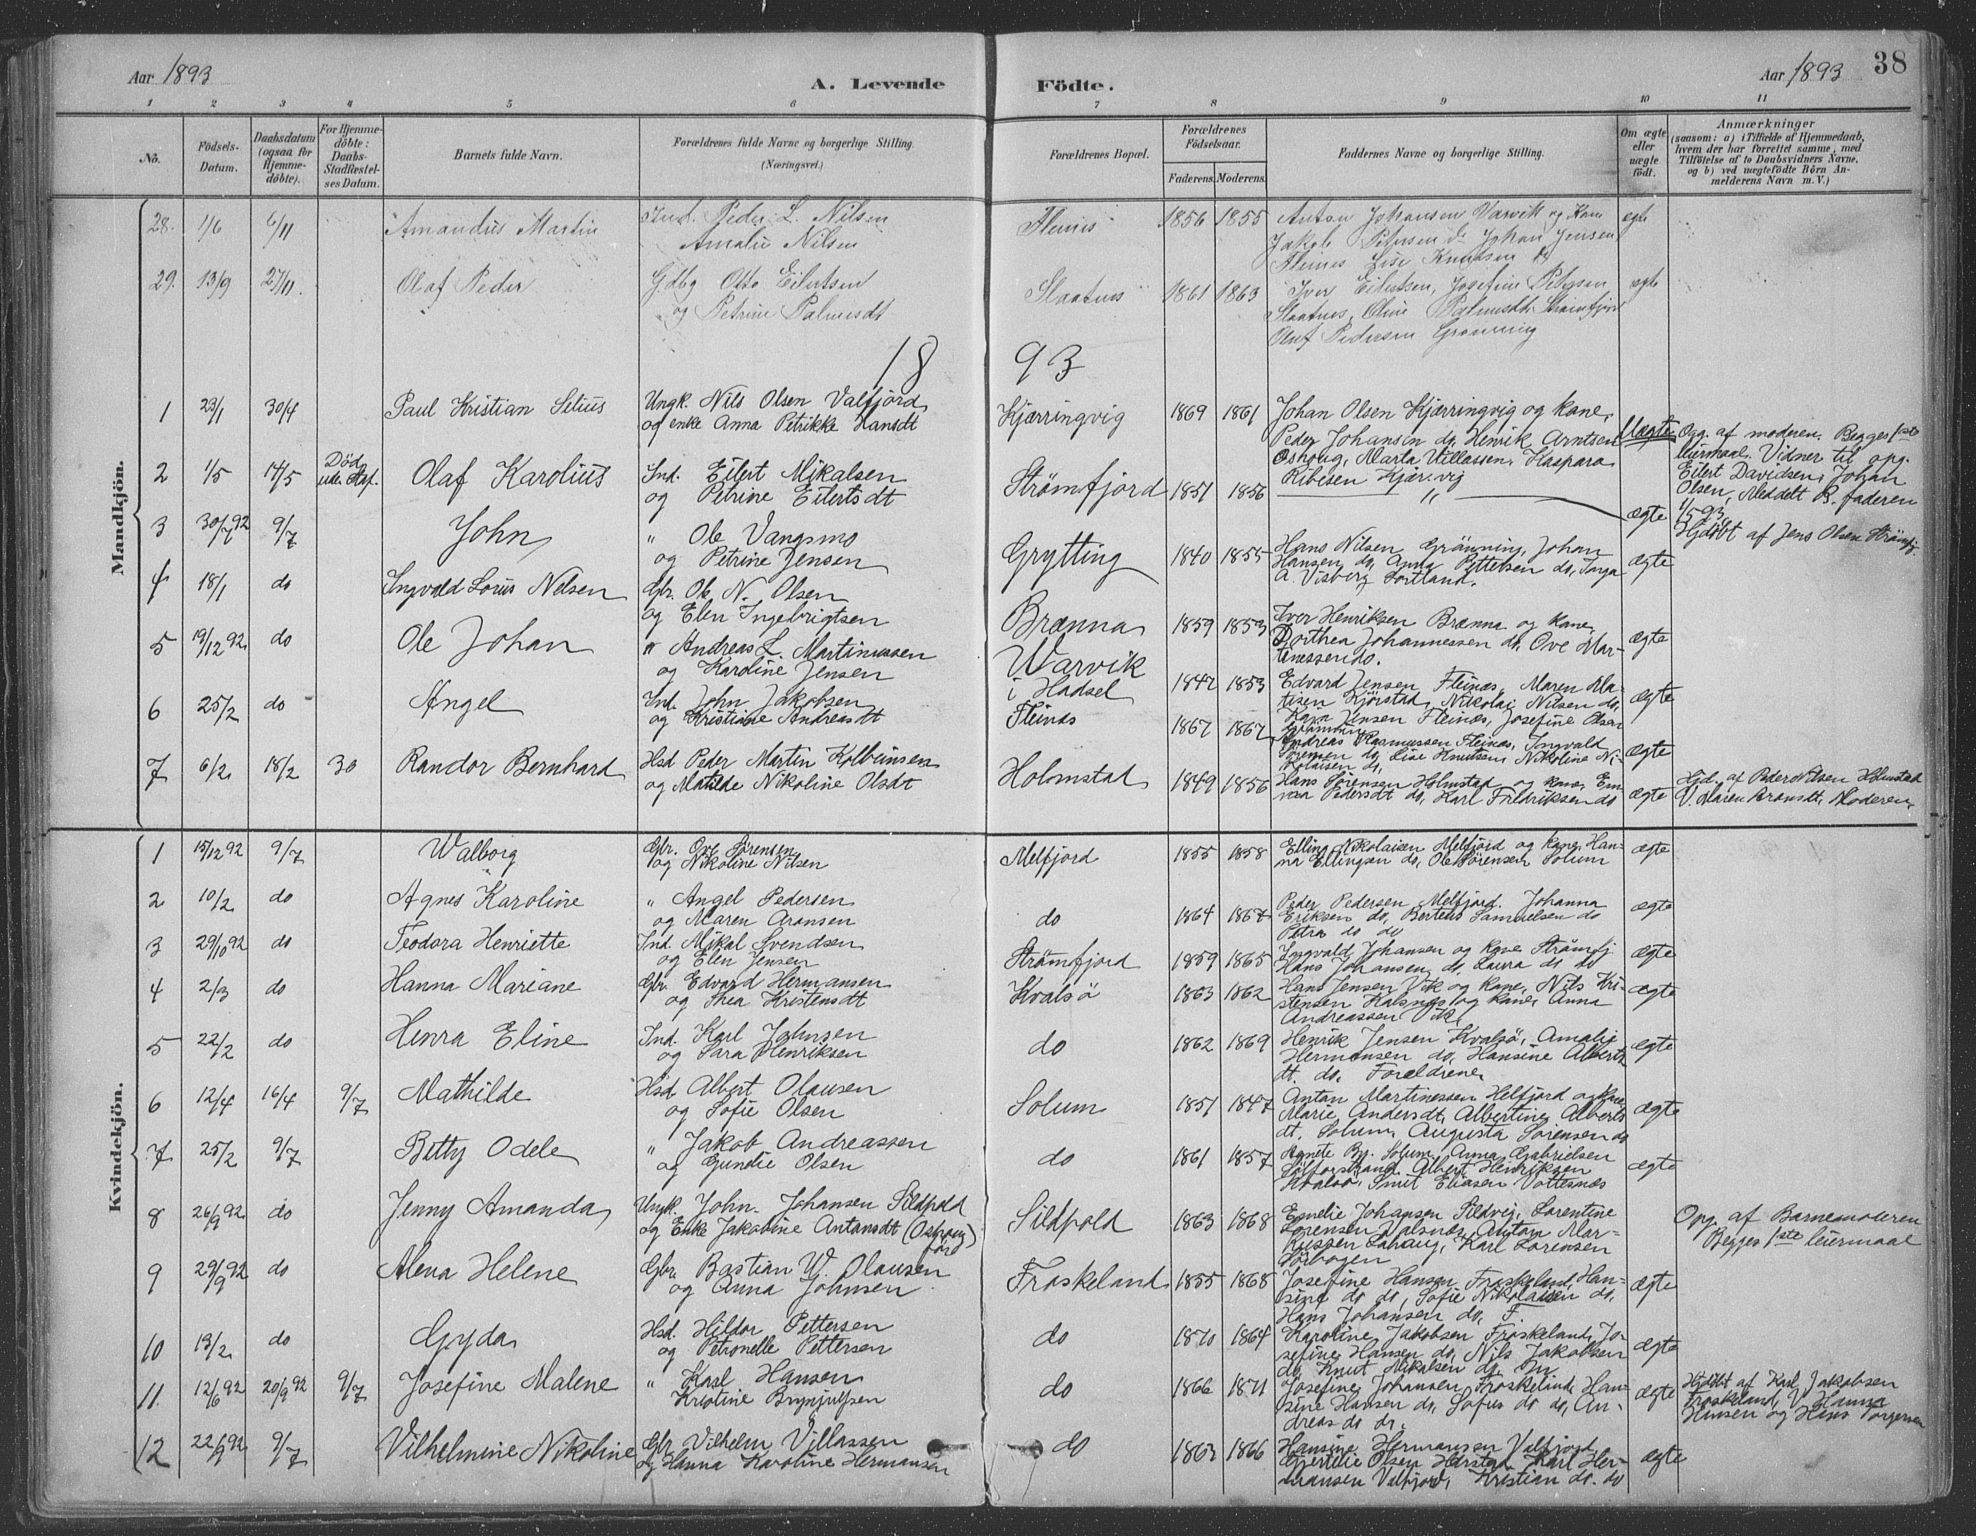 Aar 1893
A. Levende Födte.
Aar 1893
38
1 2 3 4 5 6 7 8 9 10 11
No. Födsels-Datum. Daabsdatum (ogsaa for Hjemmedöbte). For Hjemmedöbte: Daabs-Stadfæstelses Datum. Barnets fulde Navn. Forældrenes fulde Navne og borgerlige Stilling. (Næringsvei.) Forældrenes Bopæl. Forældrenes Födselsaar. Faderens. Moderens. Faddernes Navne og borgerlige Stilling. Om ægte eller uægte födt. Anmærkninger (saasom: a) i Tilfælde af Hjemmedaab, hvem der har forrettet samme, med Tilföielse af to Daabsvidners Navne, og b) ved uægtefödte Börn Anmelderens Navn m. V.)
Mandkjön.
28. 1/6 6/11 Amandus Martin Ind. Peder L. Nilsen Amalie Nilsen Fleines 1856 1855 Anton Johansen Varvik og Kone Jakob Petersen do Johan Jensen Fleines Lise Knudsen do ægte
29. 13/9 27/11 Olaf Peder Gdbg Otto Eilertsen og Petrine Palmesdt Slaatnes 1861 1863 Iver Eilertsen, Josefine Petersen Slaatnes, Oline Palmesdt Strömfjord Oluf Pedersen Grönning ægte
1893
1 23/1 30/4 Paul Kristian Selius Ungk. Nils Olsen Valfjord og enke Anna Petrikke Hansdt Kjærringvig 1869 1861 Johan Olsen Kjærringvig og kone, Peder Johansen do, Henrik Arntsen Oshoug, Marta Villassen, Kaspara Ribesen Kjærvig Uægte Opg. af moderen. Begges 1ste leiermaal. Vidner til opg. Eilert Davidsen, Johan Olsen, Meddelt B. faderen 1/5 93.
2 1/5 14/5 Död uden Staf. Olaf Karolius Ind. Eilert Mikalsen og Petrine Eilertsdt Strømfjord 1851 1856 " ægte Hjdöbt af Jens Olsen Strömfj.
3 30/7 92 9/7 John " Ole Vangsmo og Petrine Jensen Grytting 1840 1855 Hans Nilsen Grönning, Johan Hansen do, Anna Pettersen do, Inga A. Visberg Sortland. ægte
4 18/1 do Ingvald Louis Nelsen Gbr. Ole N. Olsen og Elen Ingebrigtsen Brænna 1859 1853 Iver Henriksen Brænna og kone, Dorthea Johannessen do, Ove Martinessen do. ægte
5 19/12 92 do Ole Johan " Andreas L. Martinussen og Karoline Jensen Warvik i Hadsel 1842 1853 Edvard Jensen Fleinæs, Maren Matisen Kjörstad, Nikolai Nilsen do, ægte
6 25/2 do Angel Ind. John Jakobsen og Kristiane Andreasdt Fleinæs 1867 1867 Kaja Jensen Fleinæs, Josefine Olsen Grönning Andreas Rasmussen Fleinæs, Ingvald Jensen do, Lise Knutsen, Nikoline Nikolaisen do, ægte
7 6/2 18/2 30 Randor Bernhard Hsd Peder Martin Kolbeinsen og Matilde Nikoline Olsdt Holmstad 1849 1856 Hans Sörensen Holmstad og kone, Emma Pedersdt do, Karl Fredriksen do ægte Hjd. af Peder Nilsen Holmstad V. Maren Aronsdt, Moderen,
Kvindekjön.
1 15/12 92 9/7 Walborg Gbr. Ove Sørensen og Nikoline Nilsen Melfjord 1855 1858 Elling Nikolaisen Melfjord og kone, Hanna Ellingsen do, Ole Sørensen Solum ægte
2 10/2 do Agnes Karoline " Angel Pedersen og Maren Aronsen do 1864 1867 Peder Pedersen Melfjord. Johanna Eriksen do, Berteus Samuelsen do Petra do do ægte
3 29/10 92 do Teodora Henriette Ind. Mikal Svendsen og Elen Jensen Strømfjord 1859 1865 Ingvald Johansen og kone Strömfj Hans Johansen do, Laura do do ægte
4 2/3 do Hanna Mariane Gbr. Edvard Hermansen og Thea Kristensdt Kvalsö 1863 1862 Hans Jensen Vik og kone, Nils Kristensen Kalsnes og kone, Anna Andreassen Vik ægte
5 22/2 do Henra Eline Ind. Karl Johnsen og Sara Henriksen do 1862 1869 Henrik Jensen Kvalsö, Amalie Hermansen do, Hansine Albertsdt. do. Forældrene ægte
6 12/4 16/4 9/7 Mathilde Hsd Albert Olausen og Sofie Olsen Solum 1851 1847 Anton Martinessen Melfjord og kone Marie Andersdt, Albertine Albertsdt. Solum, Augusta Sörensen do ægte
7 25/2 9/7 Betty Odele " Jakob Andreassen og Gundie Olsen do 1861 1857 Agnete Br. Solum, Anna Gabrielsen Albert Henriksen Kvalsö, Smit Eliasen Vottesnæs ægte
8 26/9 92 do Jenny Amanda Ungk. John. Johansen Sildpold og Enke Jakobine Antonsdt (Oshoug) Sildpold 1863 1868 Emelie Johansen Sildvig, Lorentine Sorensen Valsnæs, Anton Markussen Karl Sørensen Opg. af Barnemoderen Begges 1ste leiermaal
9 29/9 92 do Alena Helene Gbr. Bastian W. Olausen og Anna Johnsen Froskeland 1855 1868 Josefine Hansen Froskeland, Hansine do do, Sofie Nikolaisen do, Hans Johansen do, F ægte
10 13/2 do Gyda Hsd. Hildor Pettersen og Petronelle Pettersen do 1870 1864 Karoline Jakobsen Froskeland, Josefine Hansen do, Nils Jakobsen do Knut Nikolsen do ægte
11. 12/6 92 20/9 92 9/7 Josefine Malene " Karl Hansen Kristine Brynjulfsen do 1866 1871 Josefine Johansen Froskeland, Hansine Hansen do, Sofus do do, Andreas do do. ægte Hjdöbt af Karl Jakobsen Froskeland, V. Hanna Hansen og Hans Torgersen
12 22/9 92 9/7 Vilhelmine Nikoline Gbr. Vilhelm Villassen og Hanna Karoline Hermansen do 1863 1866 Hansine Hermansen Valfjord Olsen Karl Hermansen Valfjord, Kristian do. do ægte